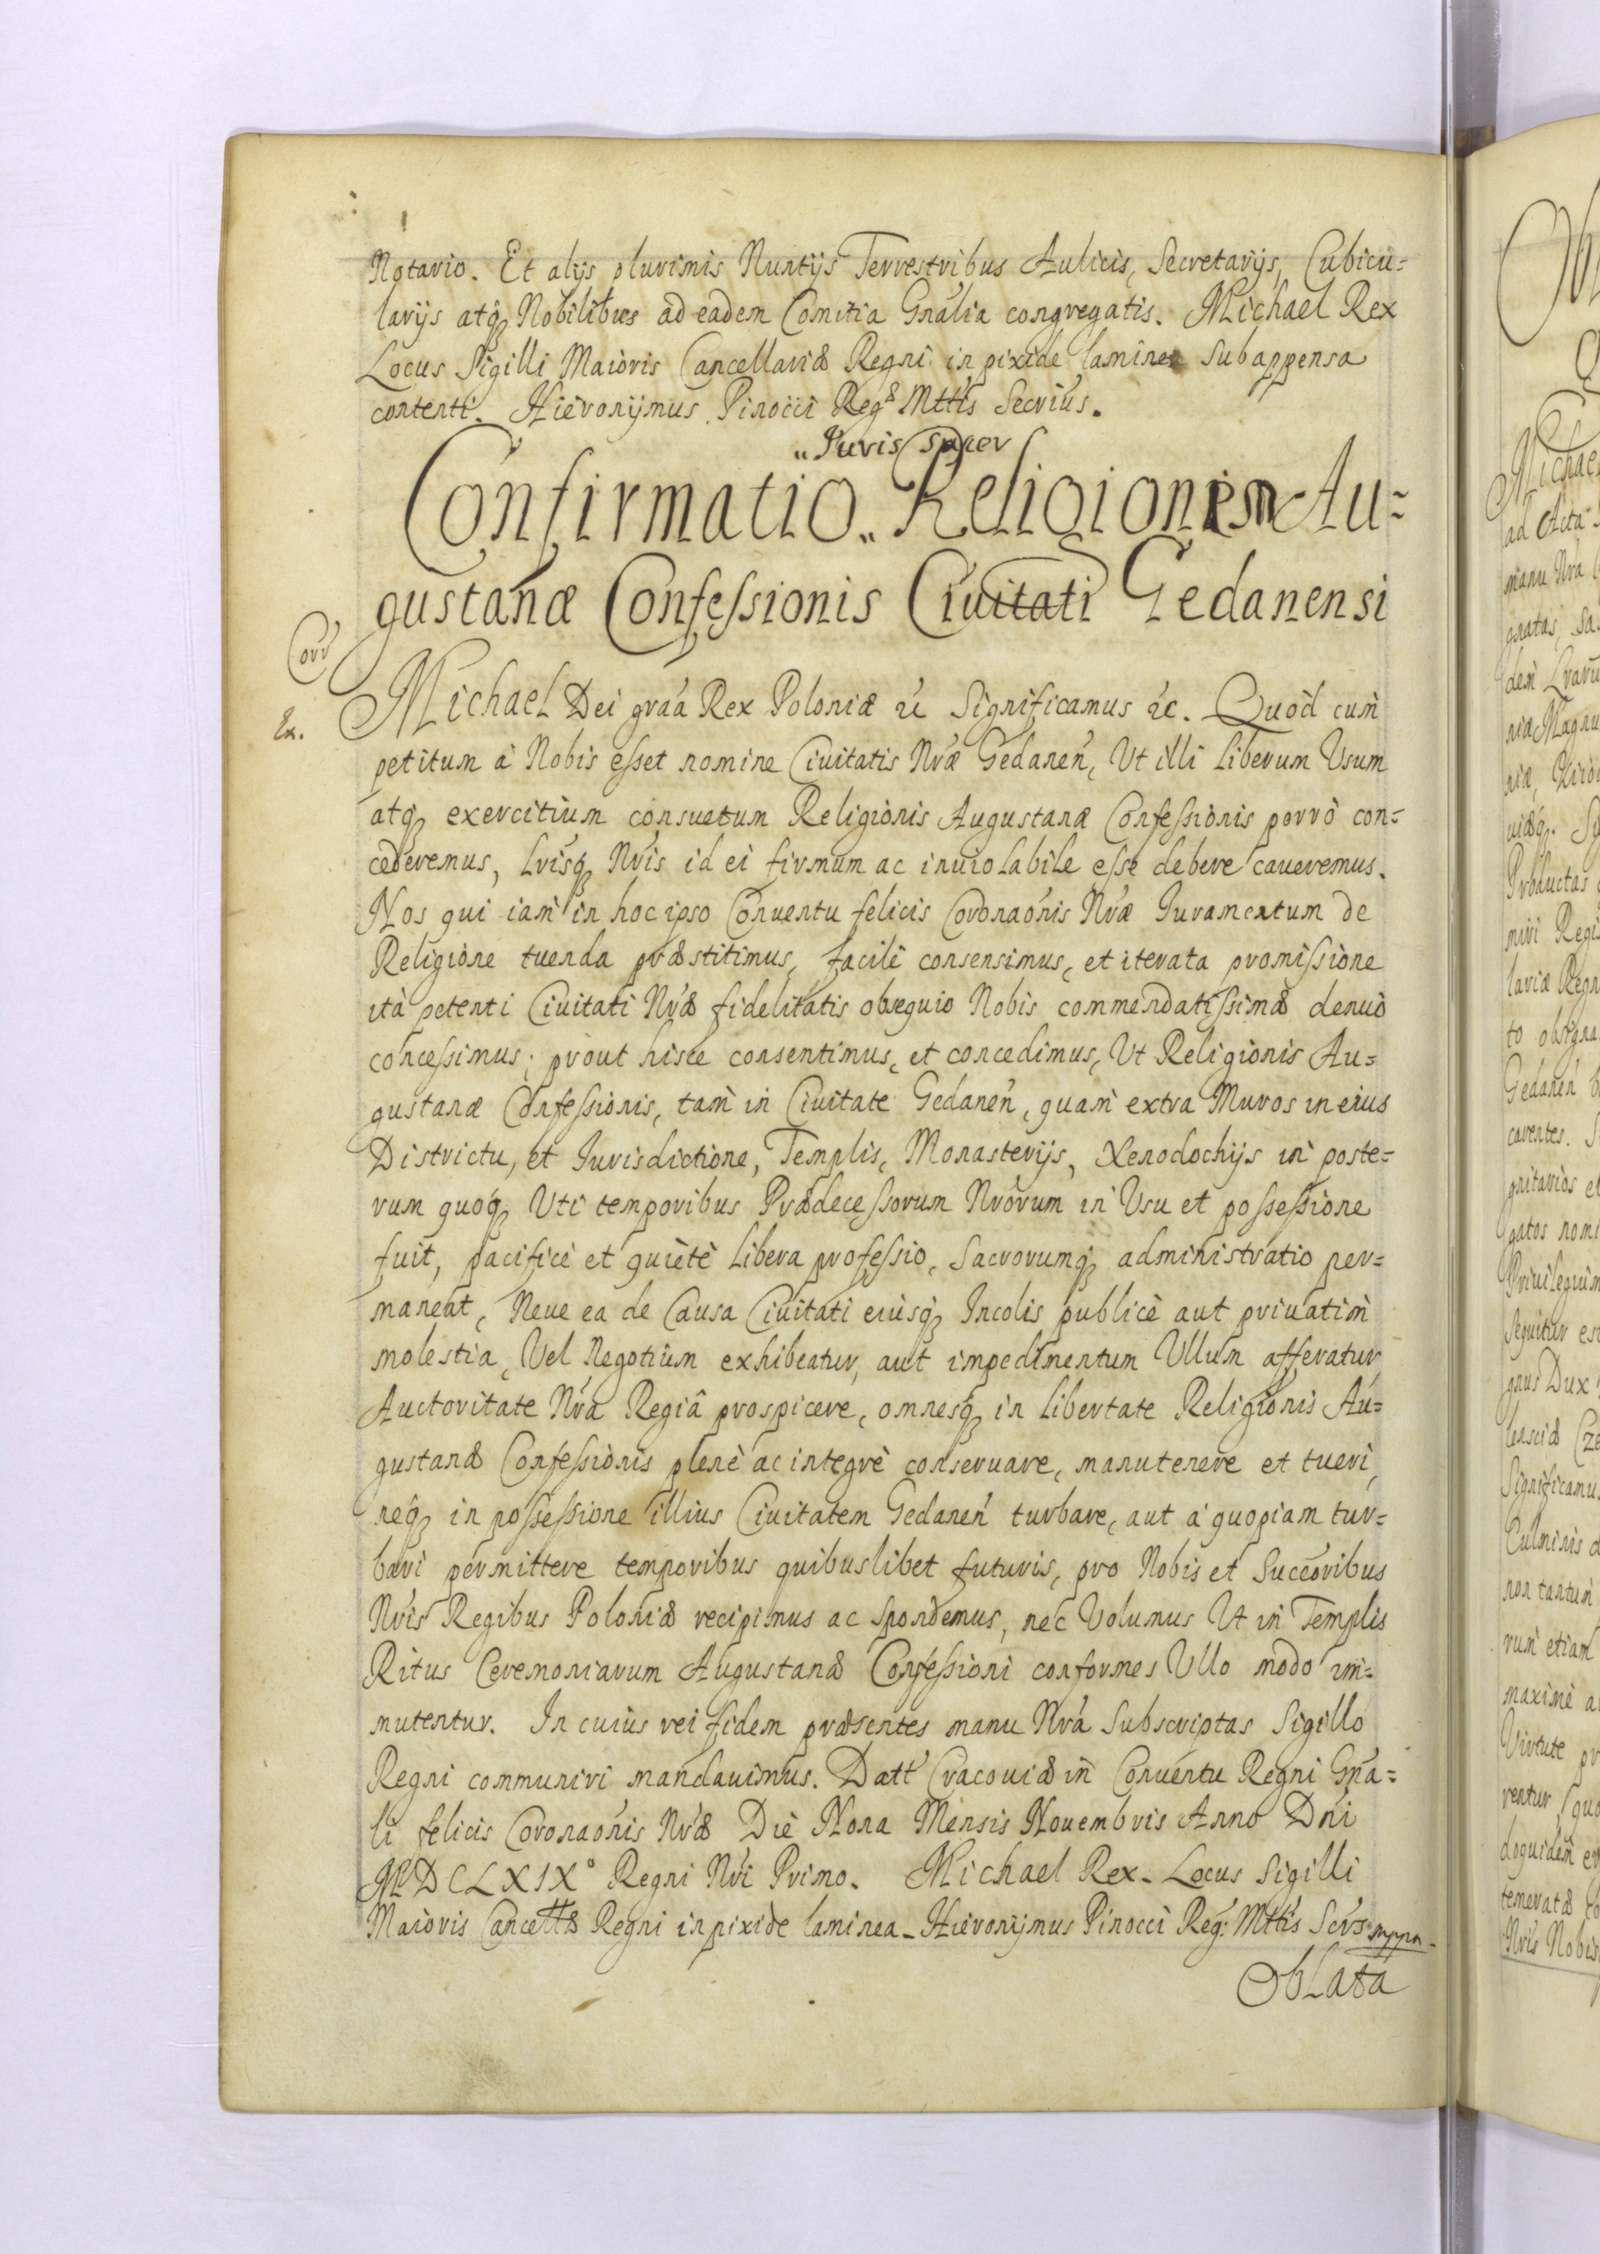 Notario. Et alijs plurimis Nuntijs Terrestribus Aulicis, Secretarijs, Cubicu=
larijs atq Nobilibus ad eadem Comitia Gnãlia congregatis. Michael Rex
Locus Sigilli Maioris Cancellariæ Regni in pixide laminea Subappensa
contenti. Hieronymus Pinocci Regæ Mttis Secrius.
"Iuris super
Confirmatio " Religionem Au=
gustanæ Confessionis Civitati Gedanensi
Corr
Ex.
Michael Dei graã Rex Poloniæ &c Significamus &c. Quod cum
petitum à Nobis esset nomine Civitatis Nræ Gedanen, Ut illi Liberum Usum
atq exercitium consuetum Religionis Augustanæ Confessionis porrò con=
cederemus, Lrisq Nris id ei firmum ac inviolabile esse debere caveremus.
Nos qui iam in hoc ipso Conventu felicis Coronaonis Nræ Iuramentum de
Religione tuenda præstitimus, facile consensimus, et iterata promissione
ità petenti Civitati Nræ fidelitatis obsequio Nobis commendatissimæ denuò
concessimus; prout hisce consentimus, et concedimus, Ut Religionis Au=
gustanæ Confessionis, tam in Civitate Gedanen, quam extra Muros in eius
Districtu, et Iurisdictione, Templis, Monasterijs, Xenodochijs in poste=
rum quoq Uti temporibus Prædecessorum Nrorum in Usu et possessione
fuit, pacificè et quietè Libera professio, Sacrorumq administratio per=
maneat, Neve ea de Causa Civitati eiusq Incolis publicè aut privatim
molestia, Vel Negotium exhibeatur, aut impedimentum Ullum afferatur
Auctoritate Nra Regiâ prospicere, omnesq in Libertate Religionis Au=
gustanæ Confessionis plenè ac integrè conservare, manutenere et tueri,
neq in possessione illius Civitatem Gedanen turbare, aut a quopiam tur=
bari permittere temporibus quibuslibet futuris, pro Nobis et Succoribus
Nris Regibus Poloniæ recipimus ac Spondemus, nec Volumus Ut in Templis
Ritus Ceremoniarum Augustanæ Confessioni conformes Ullo modo im=
mutentur. In cuius rei fidem præsentes manu Nra Subscriptas Sigillo
Regni communiri mandavimus. Datt Cracoviæ in Conventu Regni Gna=
li felicis Coronaonis Nræ Die Nona Mensis Novembris Anno Dni
MDCLXIX° Regni Nri Primo. Michael Rex. Locus Sigilli
Maioris Cancettæ Regni in pixide laminea. Hieronymus Pinocci Reg: Mttis Scrs mppa.
Oblata